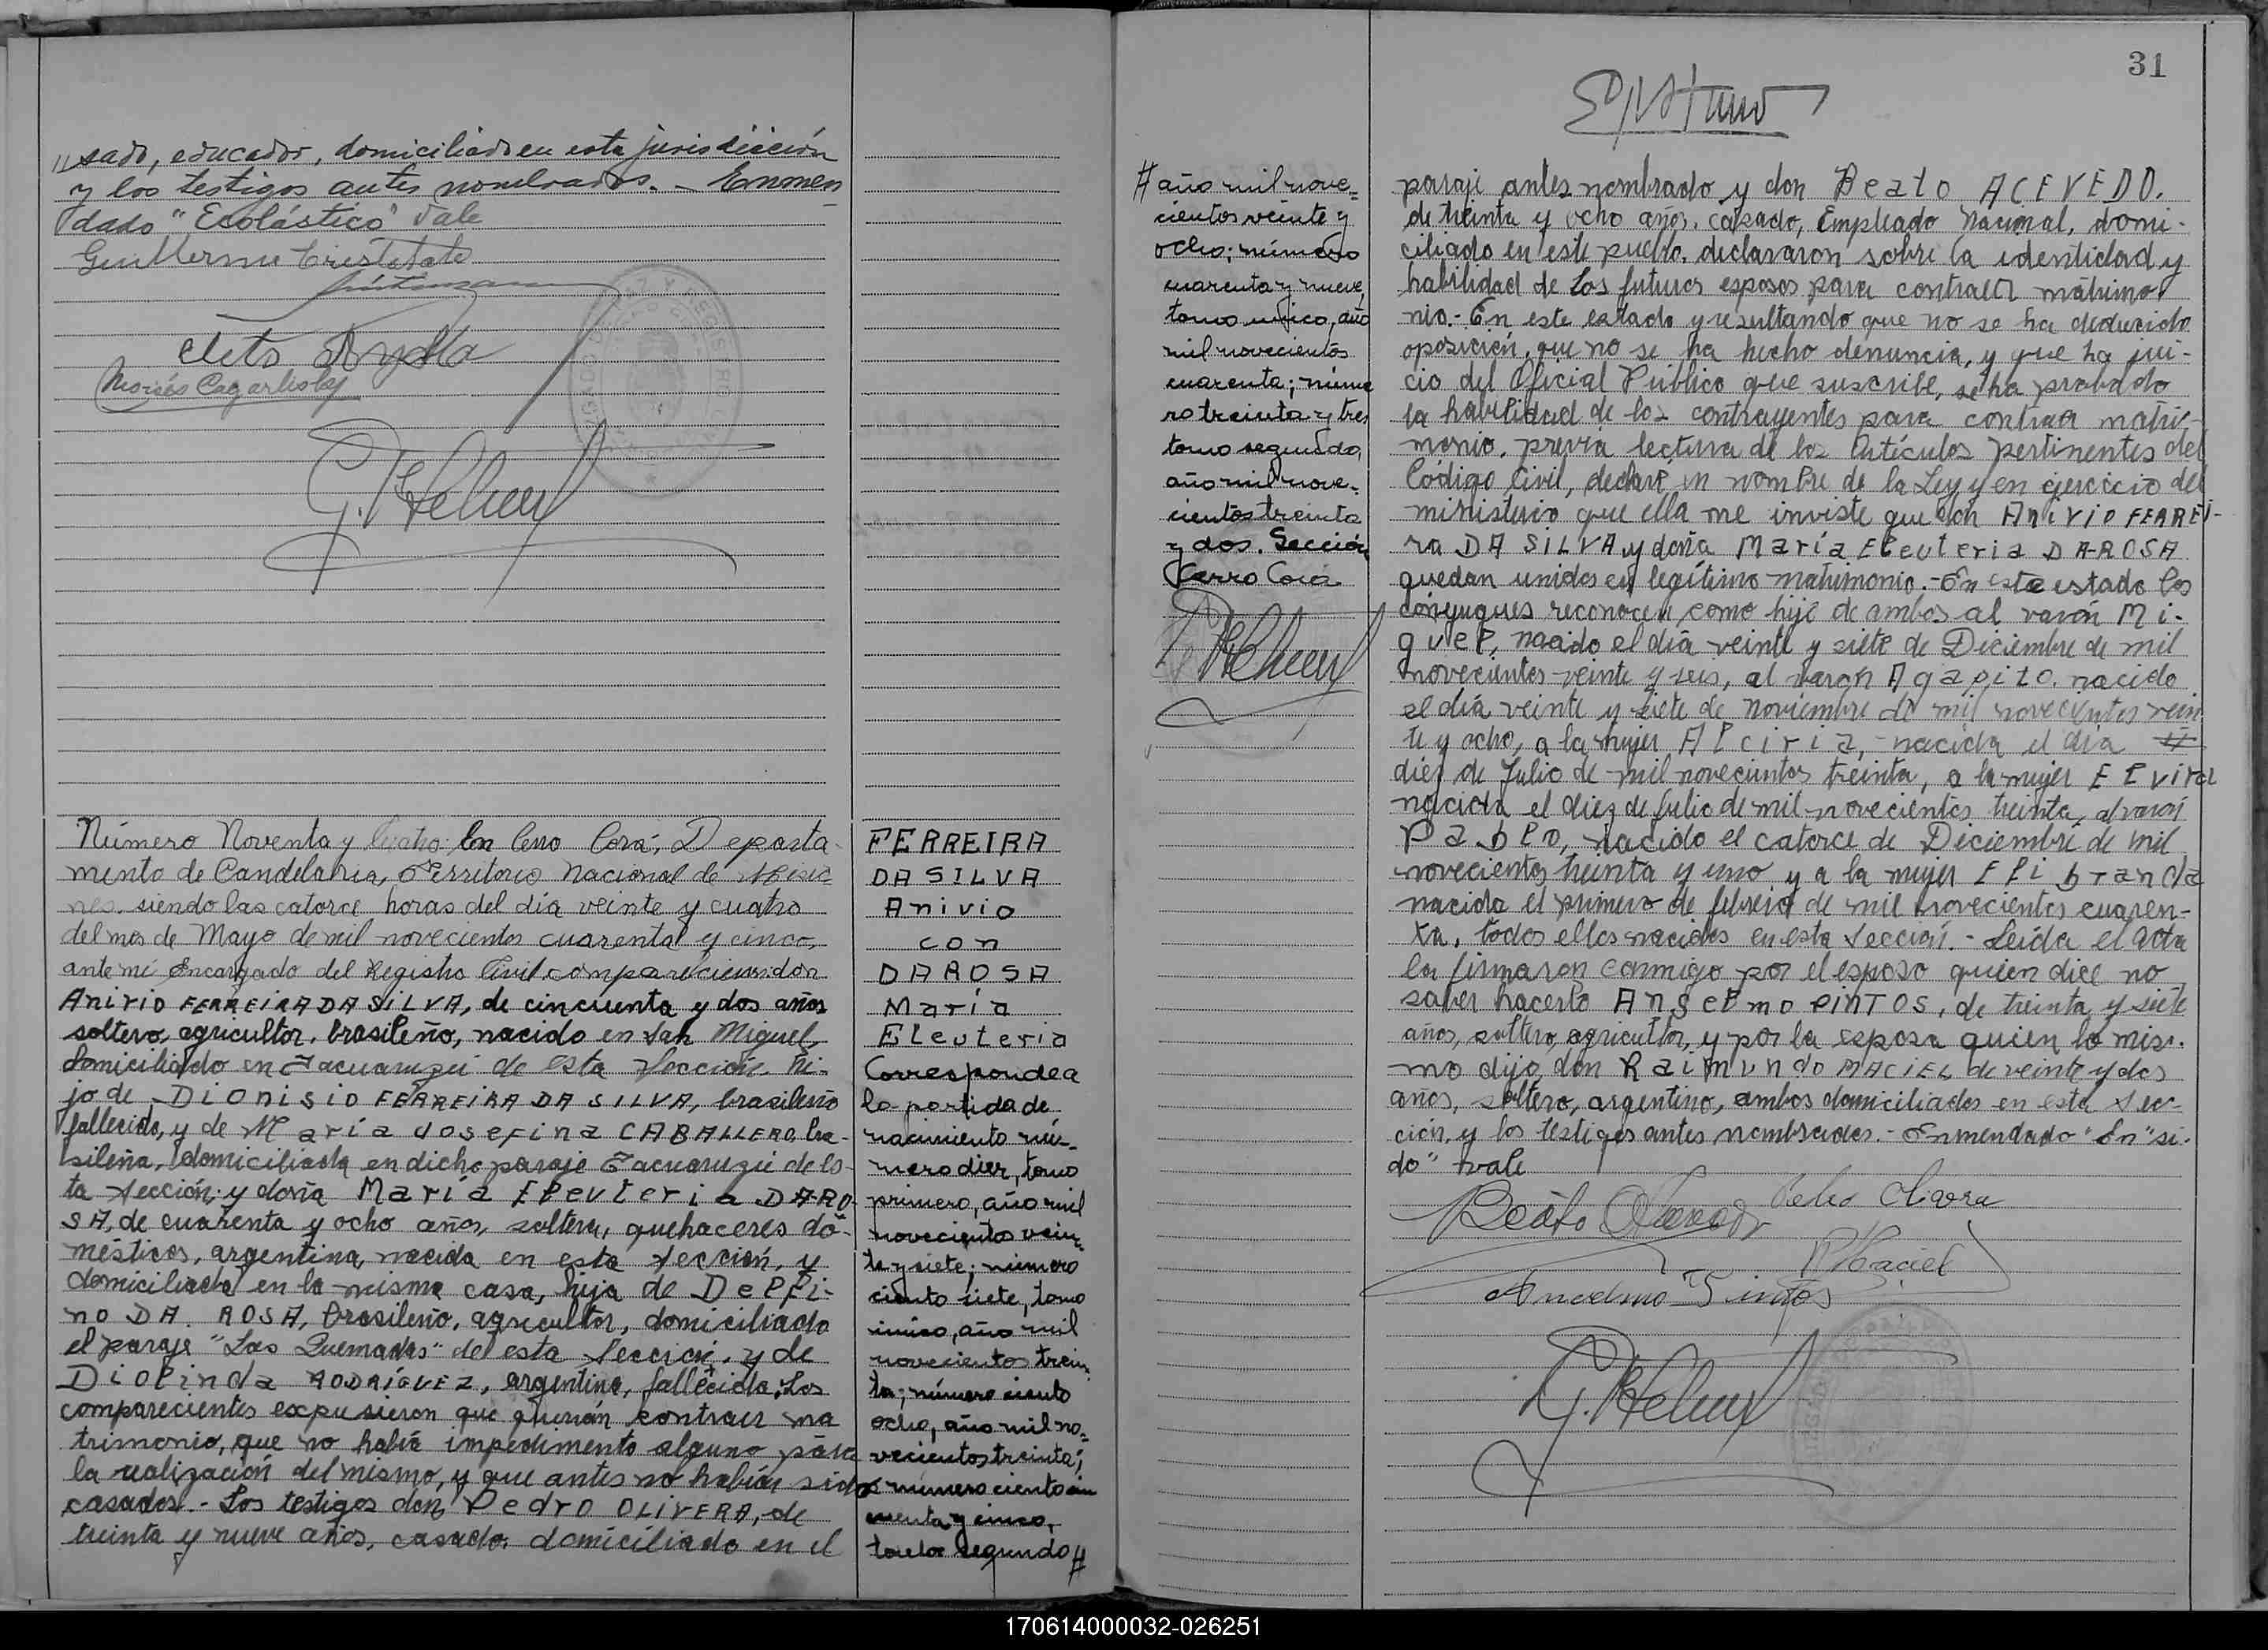 sado, educador, domiciliado en esta jurisdicción
y los testigos antes nombrados. - Enmen
dado "Ecolástico" vale
Guillermo
Cleto
Moisés
Número Noventa y Cuatro: En Cerro Corá, Departa-
mento de Candelaria, Territorio Nacional de Misio
nes, siendo las catorce horas del día veinte y cuatro
del mes de Mayo de mil novecientos cuarenta y cinco,
ante mi Encargado del Registro Civil comparecieron don
Anivio FERREIRA DA SILVA, de cincuenta y dos años
soltero, agricultor, brasileño, nacido en San Miguel,
domiciliado en Tacuaruzú de esta Sección, hi-
jo de Dionisio FERREIRA DA SILVA, brasileño
fallecido, y de María Josefina CABALLERO, bra-
sileña, domiciliada en dicho paraje Tacuaruzú de es-
ta sección; y doña María Eleuteria DA-RO-
SA, de cuarenta y ocho años, soltera, quehaceres do-
mésticos, argentina, nacida en esta sección, y
domiciliada en la misma casa, hija de Delfi-
no DA ROSA, brasileño, agricultor, domiciliado
el paraje "Las Quemadas" de esta Sección, y de
Diolinda RODRÍGUEZ, argentina, fallecida; Los
comparecientes expusieron que querían contraer ma
trimonio, que no había impedimento alguno para
la realización del mismo, y que antes no habían sido
casados. - Los testigos don Pedro OLIVERA, de
treinta y nueve años, casado, domiciliado en el
FERREIRA
DA SILVA
Anivio
con
DA ROSA
María
Eleuteria
Corresponde a
la partida de
nacimiento nú-
mero diez, tomo
primero, año mil
novecientos vein-
te y siete; número
ciento siete, tomo
único, año mil
novecientos trein
ta; número ciento
ocho, año mil no-
vecientos treinta;
número ciento cin
cuenta y cinco,
tomo segundo #
# año mil nove-
cientos veinte y
ocho; número
cuarenta y nueve,
tomo único, año
mil novecientos
cuarenta; núme
ro treinta y tres
tomo segundo,
año mil nove-
cientos treinta
y dos. Sección
Cerro Corá
31
paraje antes nombrado y don Beato ACEVEDO,
de treinta y ocho años, casado, Empleado Nacional, domi-
ciliado en este pueblo, declararon sobre la identidad y
habilidad de los futuros esposos para contraer matrimo-
nio.- En este estado y resultando que no se ha deducido
oposición, que no se ha hecho denuncia, y que ha jui-
cio del Oficial Público que suscribe, se ha probado
la habilidad de los contrayentes para contraer matri-
monio, previa lectura de los Artículos pertinentes del
Código Civil, declaré en nombre de la Ley y en ejercicio del
ministerio que ella me inviste que don Anivio FERREI-
ra DA SILVA y doña María Eleuteria DA-ROSA
quedan unidos en legítimo matrimonio.- En este estado los
cónyugues reconocen como hijo de ambos al varón Mi-
guel, nacido el día veinte y siete de Diciembre de mil
novecientos veinte y seis, al varón Agapito, nacido
el día veinte y siete de Noviembre de mil novecientos vein
te y ocho, a la mujer Alciria, nacida el día
diez de Julio de mil novecientos treinta, a la mujer Elvira
nacida el diez de Julio de mil novecientos treinta, al varón
Pablo, nacido el catorce de Diciembre de mil
novecientos treinta y uno y a la mujer Elibranda
nacida el primero de febrero de mil novecientos cuaren-
ta, todos ellos nacidos en esta sección. - Leída el acta
la firmaron conmigo por el esposo quien dice no
saber hacerlo Anselmo PINTOS, de treinta y siete
años, soltero, agricultor, y por la esposa quien lo mis-
mo dijo don Raimundo MACIEL de veinte y dos
años, soltero, argentino, ambos domiciliados en esta Sec-
ción, y los testigos antes nombrados. - Enmendado "En" "si-
do" vale
Beato Acevedo Pedro Olivera
R Maciel
Anselmo Pintos
170614000032-026251